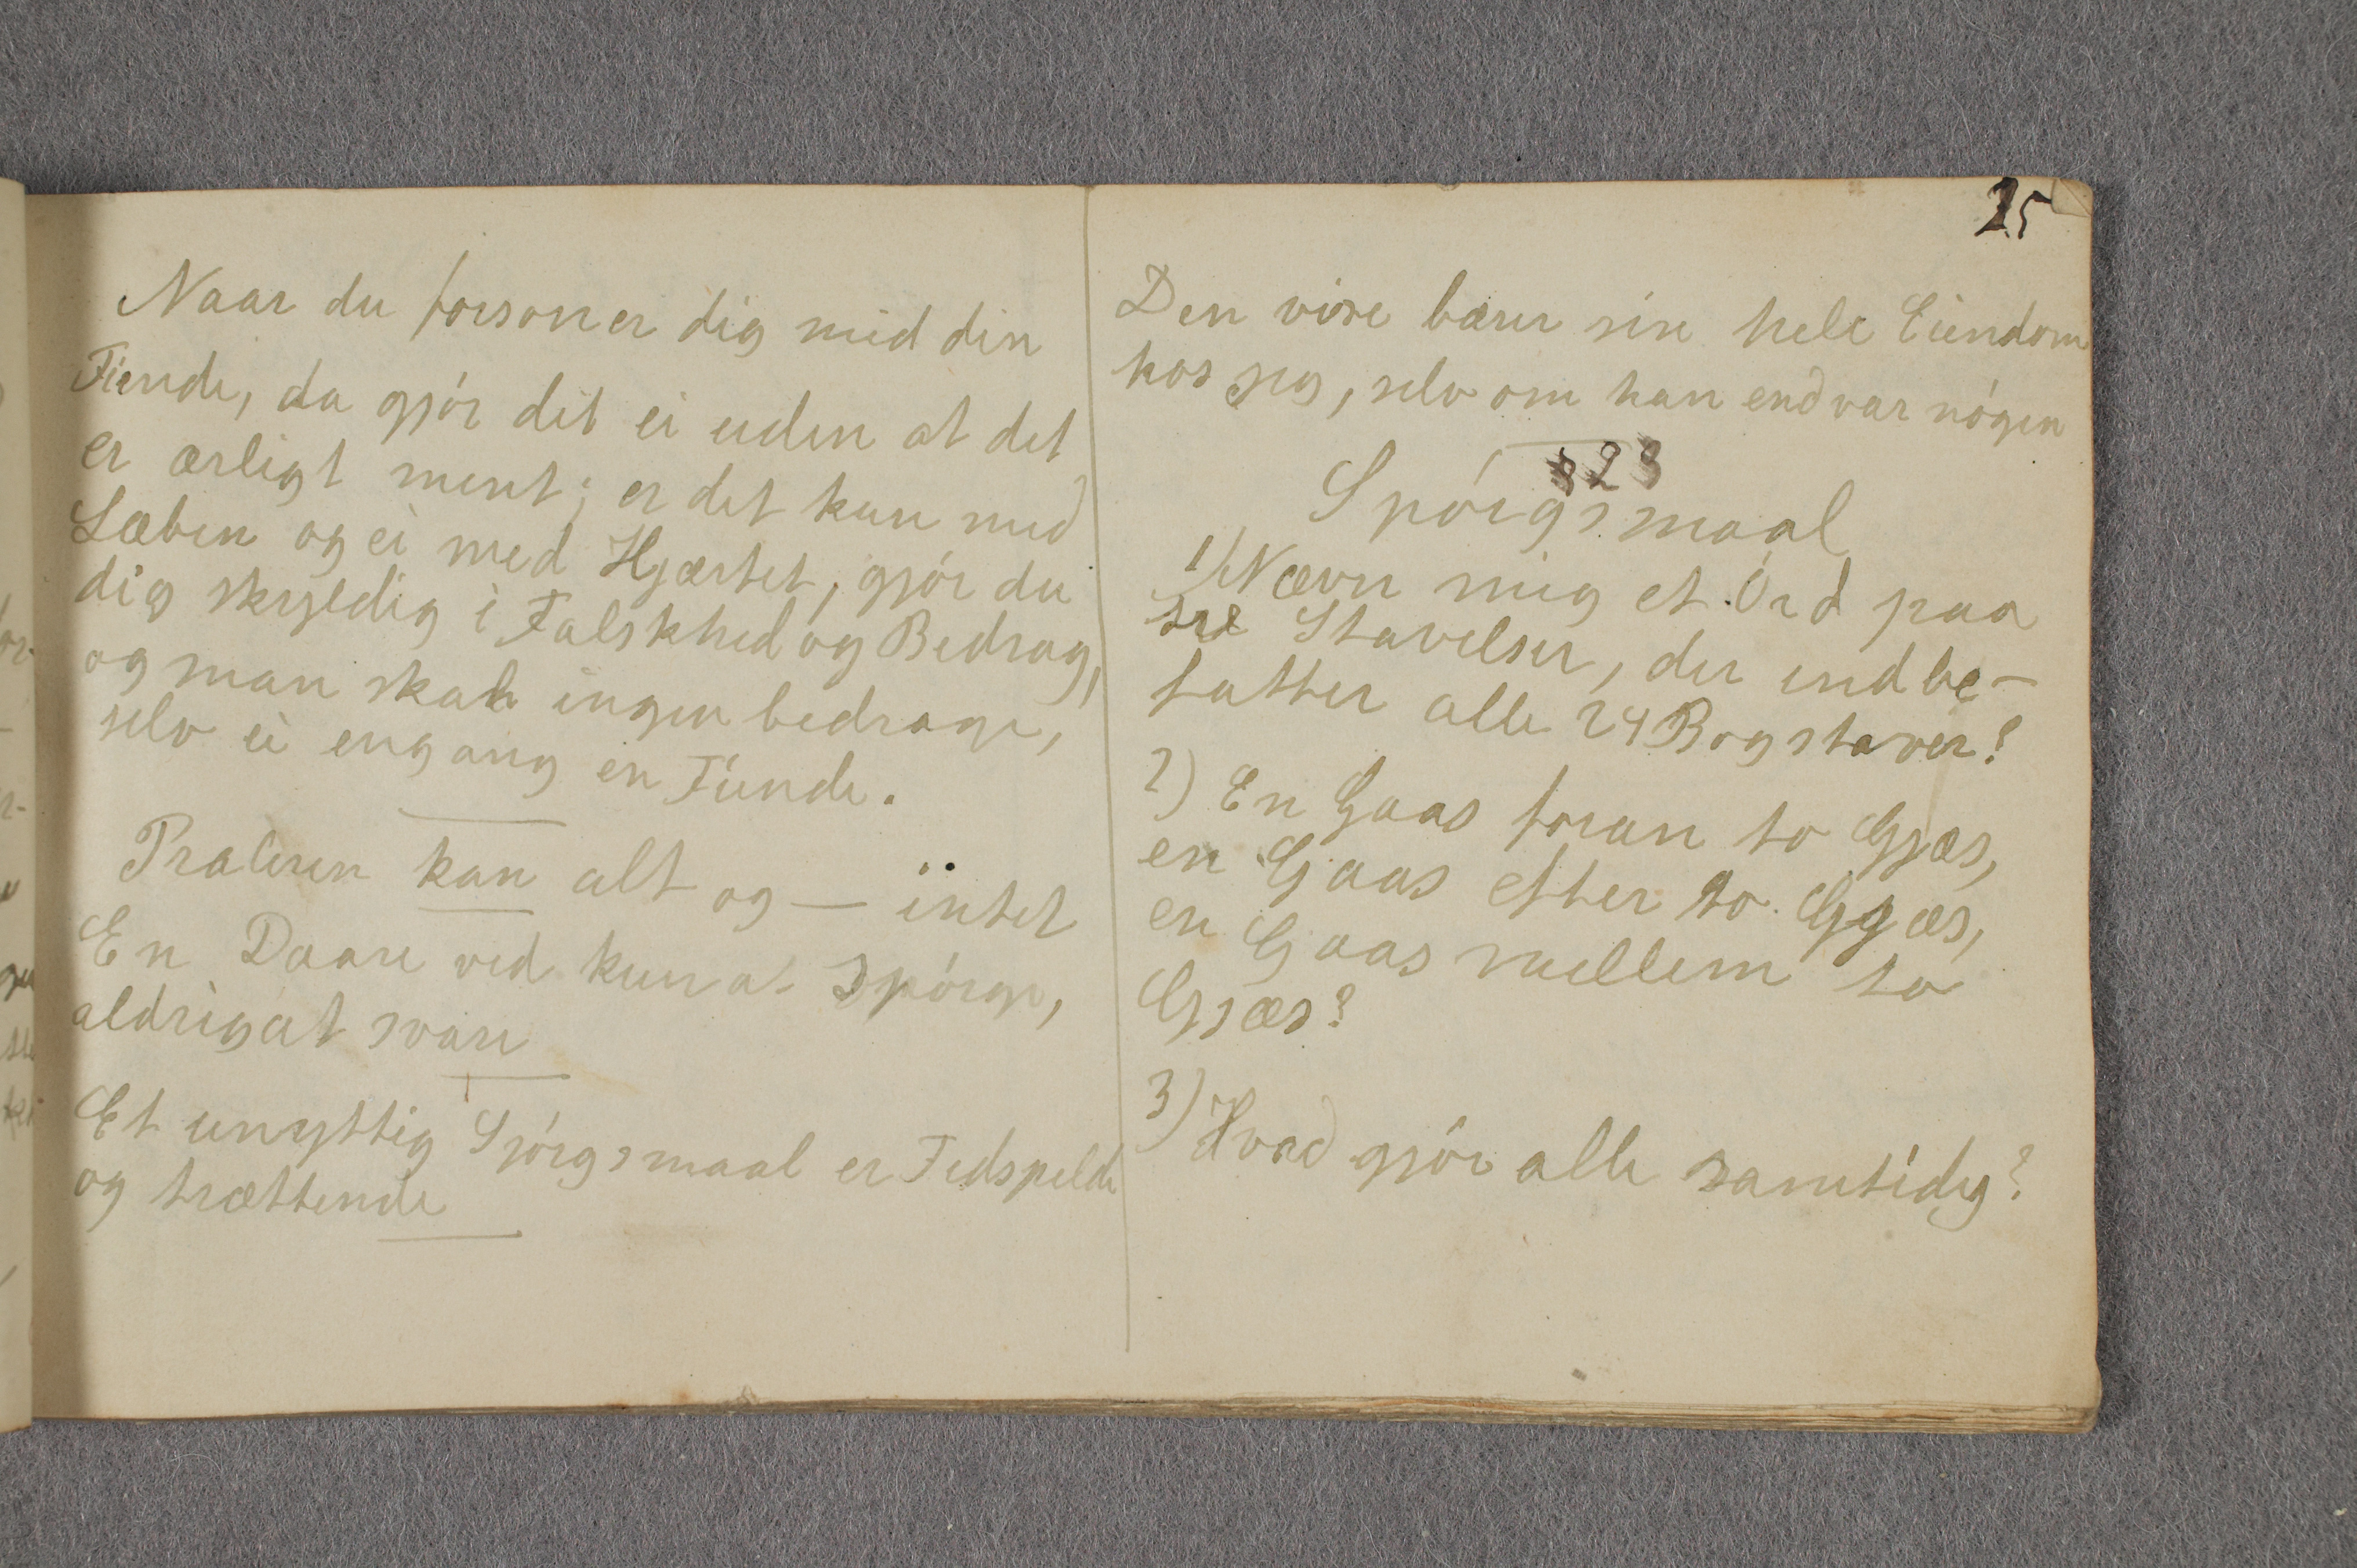 Naar du forsoner dig med din
Fiende, da gjór det ei uden at det
er ærligt ment; er det kun med
Læben og ei med Hjærtet, gjór du
dig skyldig i Falskhed og Bedrag,
og man skal ingen bedrage,
selv ei engang en Fiende.
Praleren kan alt og — intet
En Daare ved kun at spórge,
aldrig at svare
Et unyttig Spórgsmaal er Tidspilde
og trættende
25
Den vise bærer sin hele Eiendom
hos sig, selv om han end var nógen
23
Spórgsmaal
1) Nævn mig et Ord paa
tre Stavelser, der indbe-
fatter alle 24 Bogstaver?
2) En Gaas foran to Gjæs,
en Gaas efter to Gjæs,
en Gaas mellem to
Gjæs?
3) Hvad gjór alle samtidig?